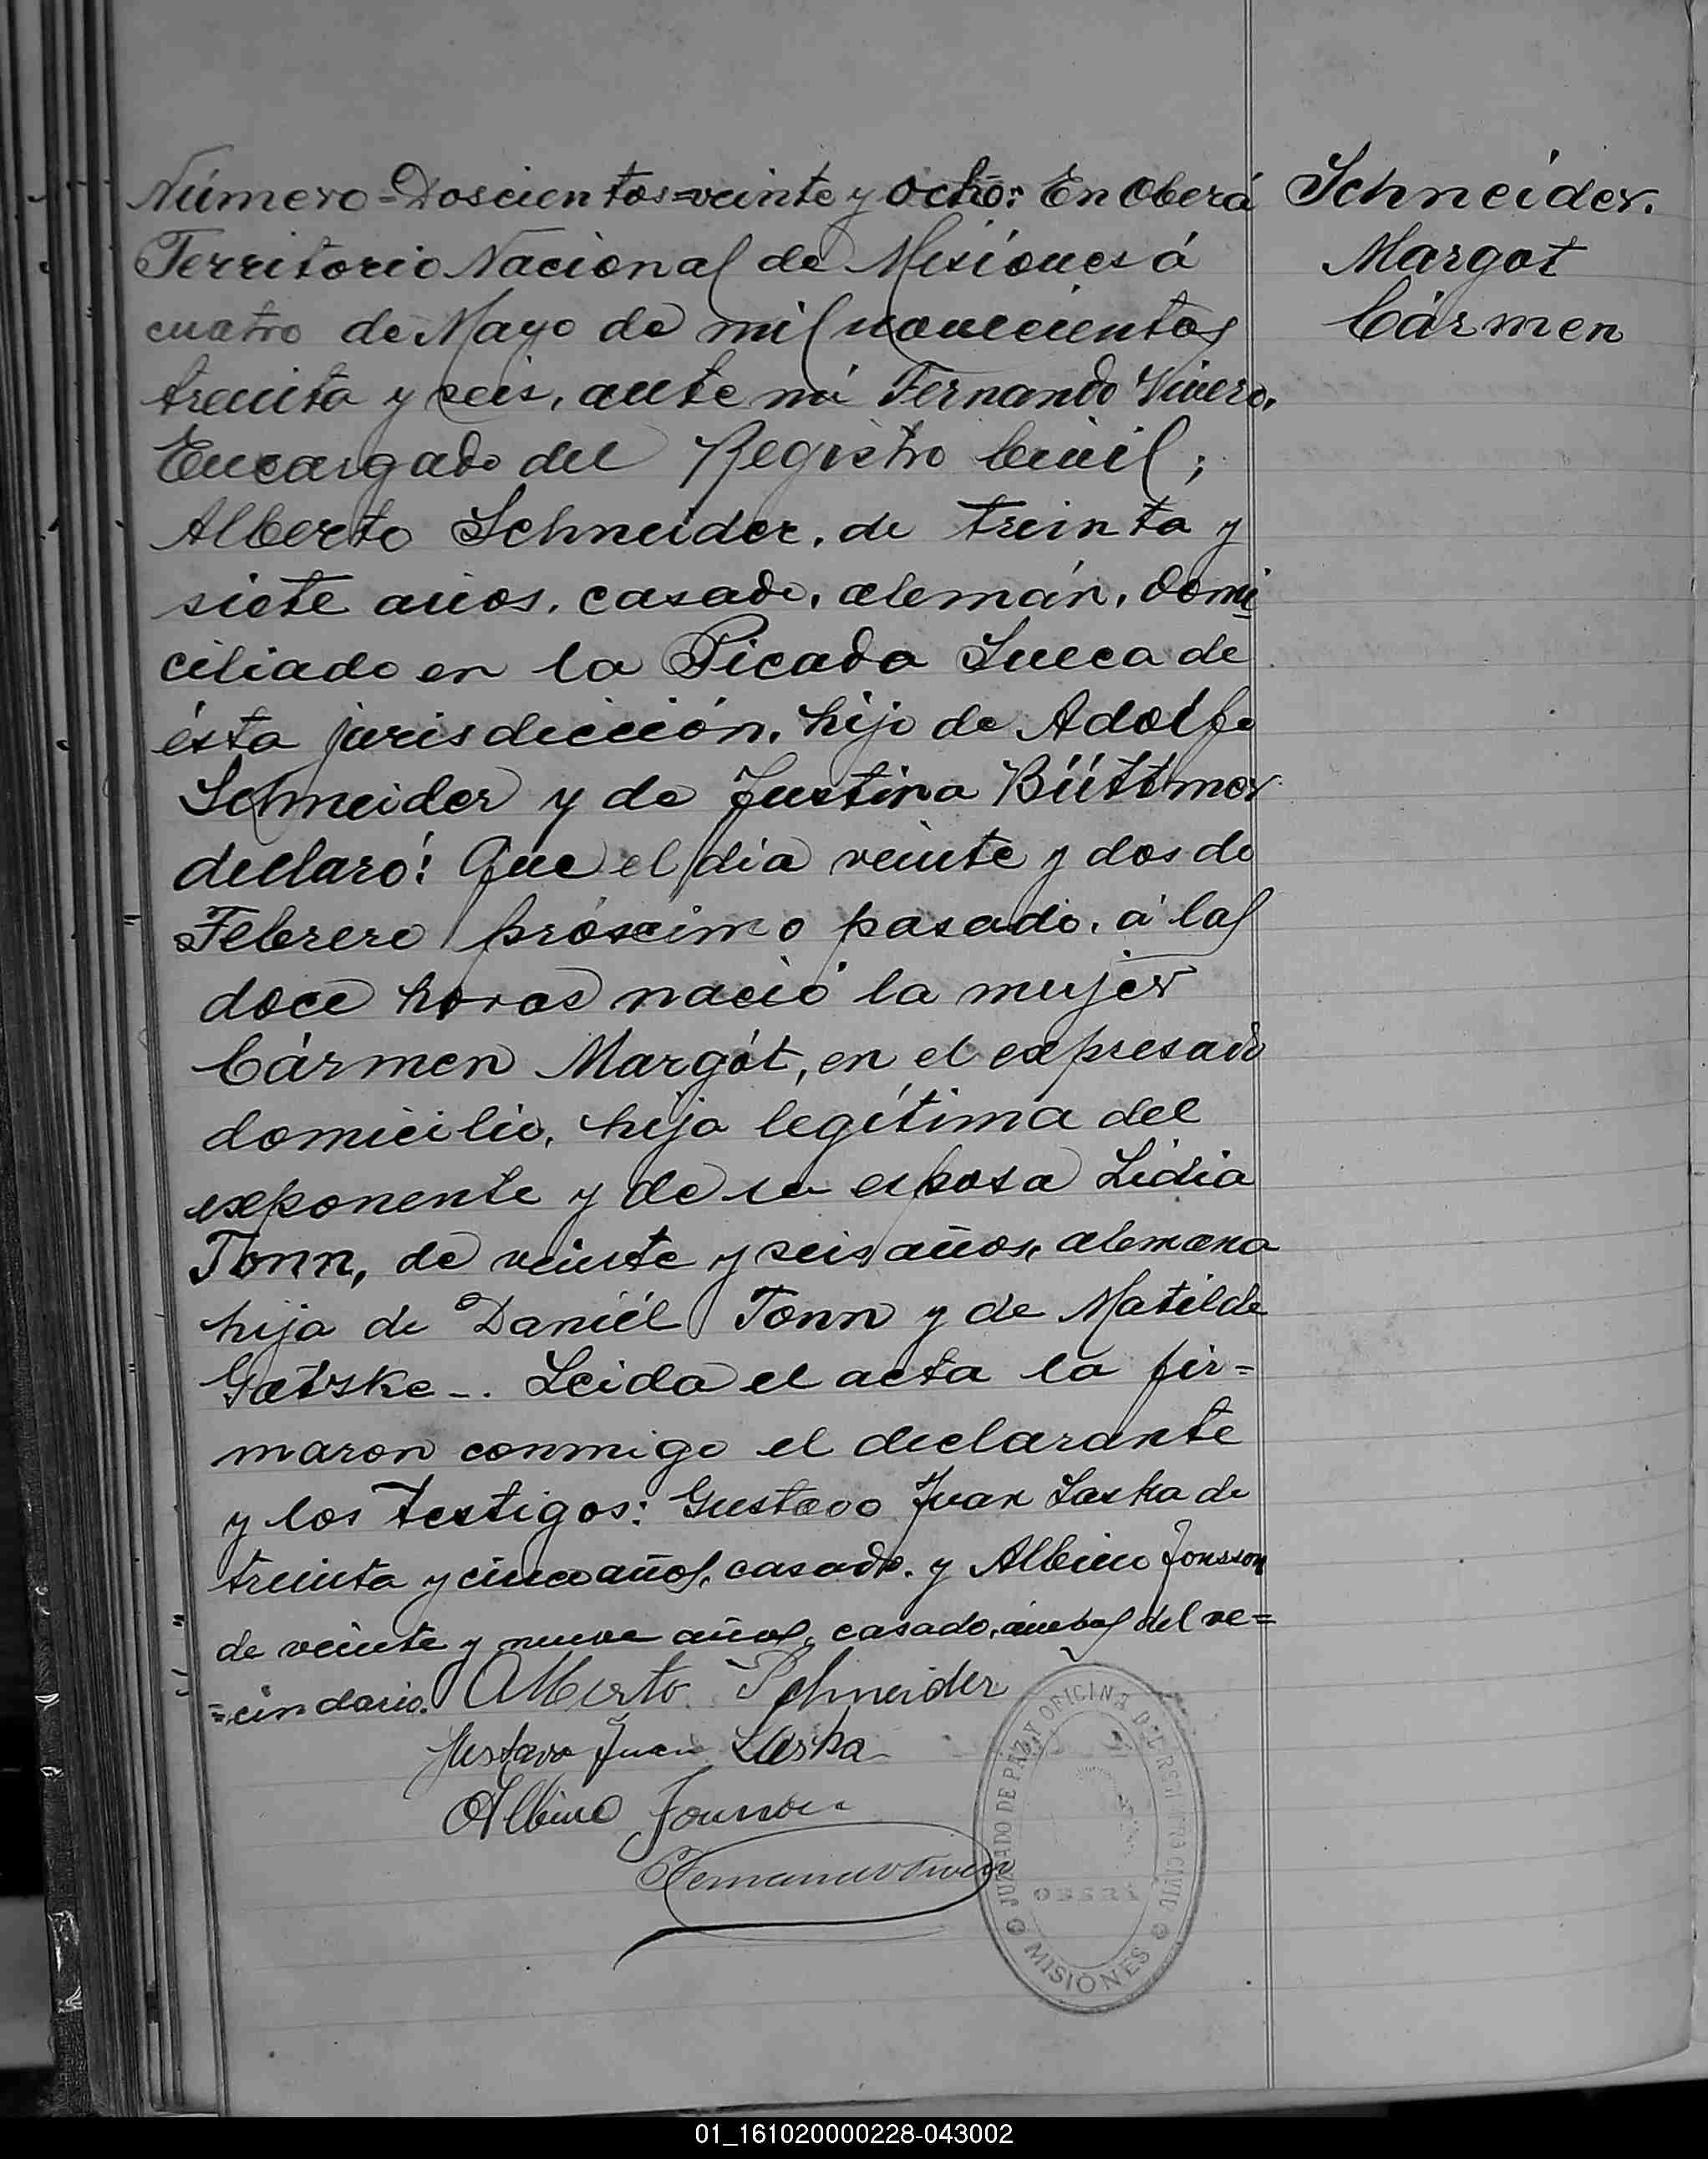 Número=Doscientos=veinte y ocho: En Oberá
Territorio Nacional de Misiónes á
cuatro de Mayo de mil novecientos
treinta y seis, ante mí Fernando Vivero,
Encargado del Registro Civil;
Alberto Schneider, de treinta y
siete años, casado, alemán, domi
ciliado en la Picada Sueca de
ésta jurisdicción, hijo de Adolfo
Schneider y de Justina Büttner
declaró: Que el día veinte y dos de
Febrero próximo pasado, á las
doce horas nació la mujer
Cármen Margót, en el expresado
domicilio, hija legítima del
exponente y de su esposa Lidia
Tonn, de veinte y seis años, alemana
hija de Daniél Tonn y de Matilde
Gatzke-. Leida el acta la fir=
maron conmigo el declarante
y los testigos: Gustavo Juan Laska de
treinta y cinco años, casado, y Albino Jonsson
de veinte y nueve años, casado, ámbos del ve=
=cindario. Alberto Schneider
Gustavo Juan Laska
Albino Jonsson
Fernando Vivero
Schneider.
Margot
Cármen
JUZGADO DE PAZ Y OFICINA DEL REGISTRO CIVIL
OBERÁ
MISIONES
01_161020000228-043002